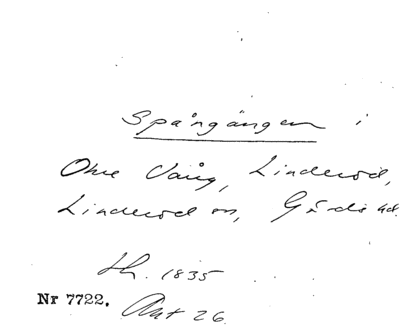 Spångängen i
Ohre Vång, Linderöd,
Linderöd sn, Gärds hd.
Lh. 1835
Nr 7722. Akt 26